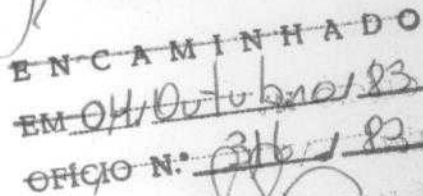 ENCAMINHADO
EM 04/Outubro/83
OFÍCIO N.º 316 / 83